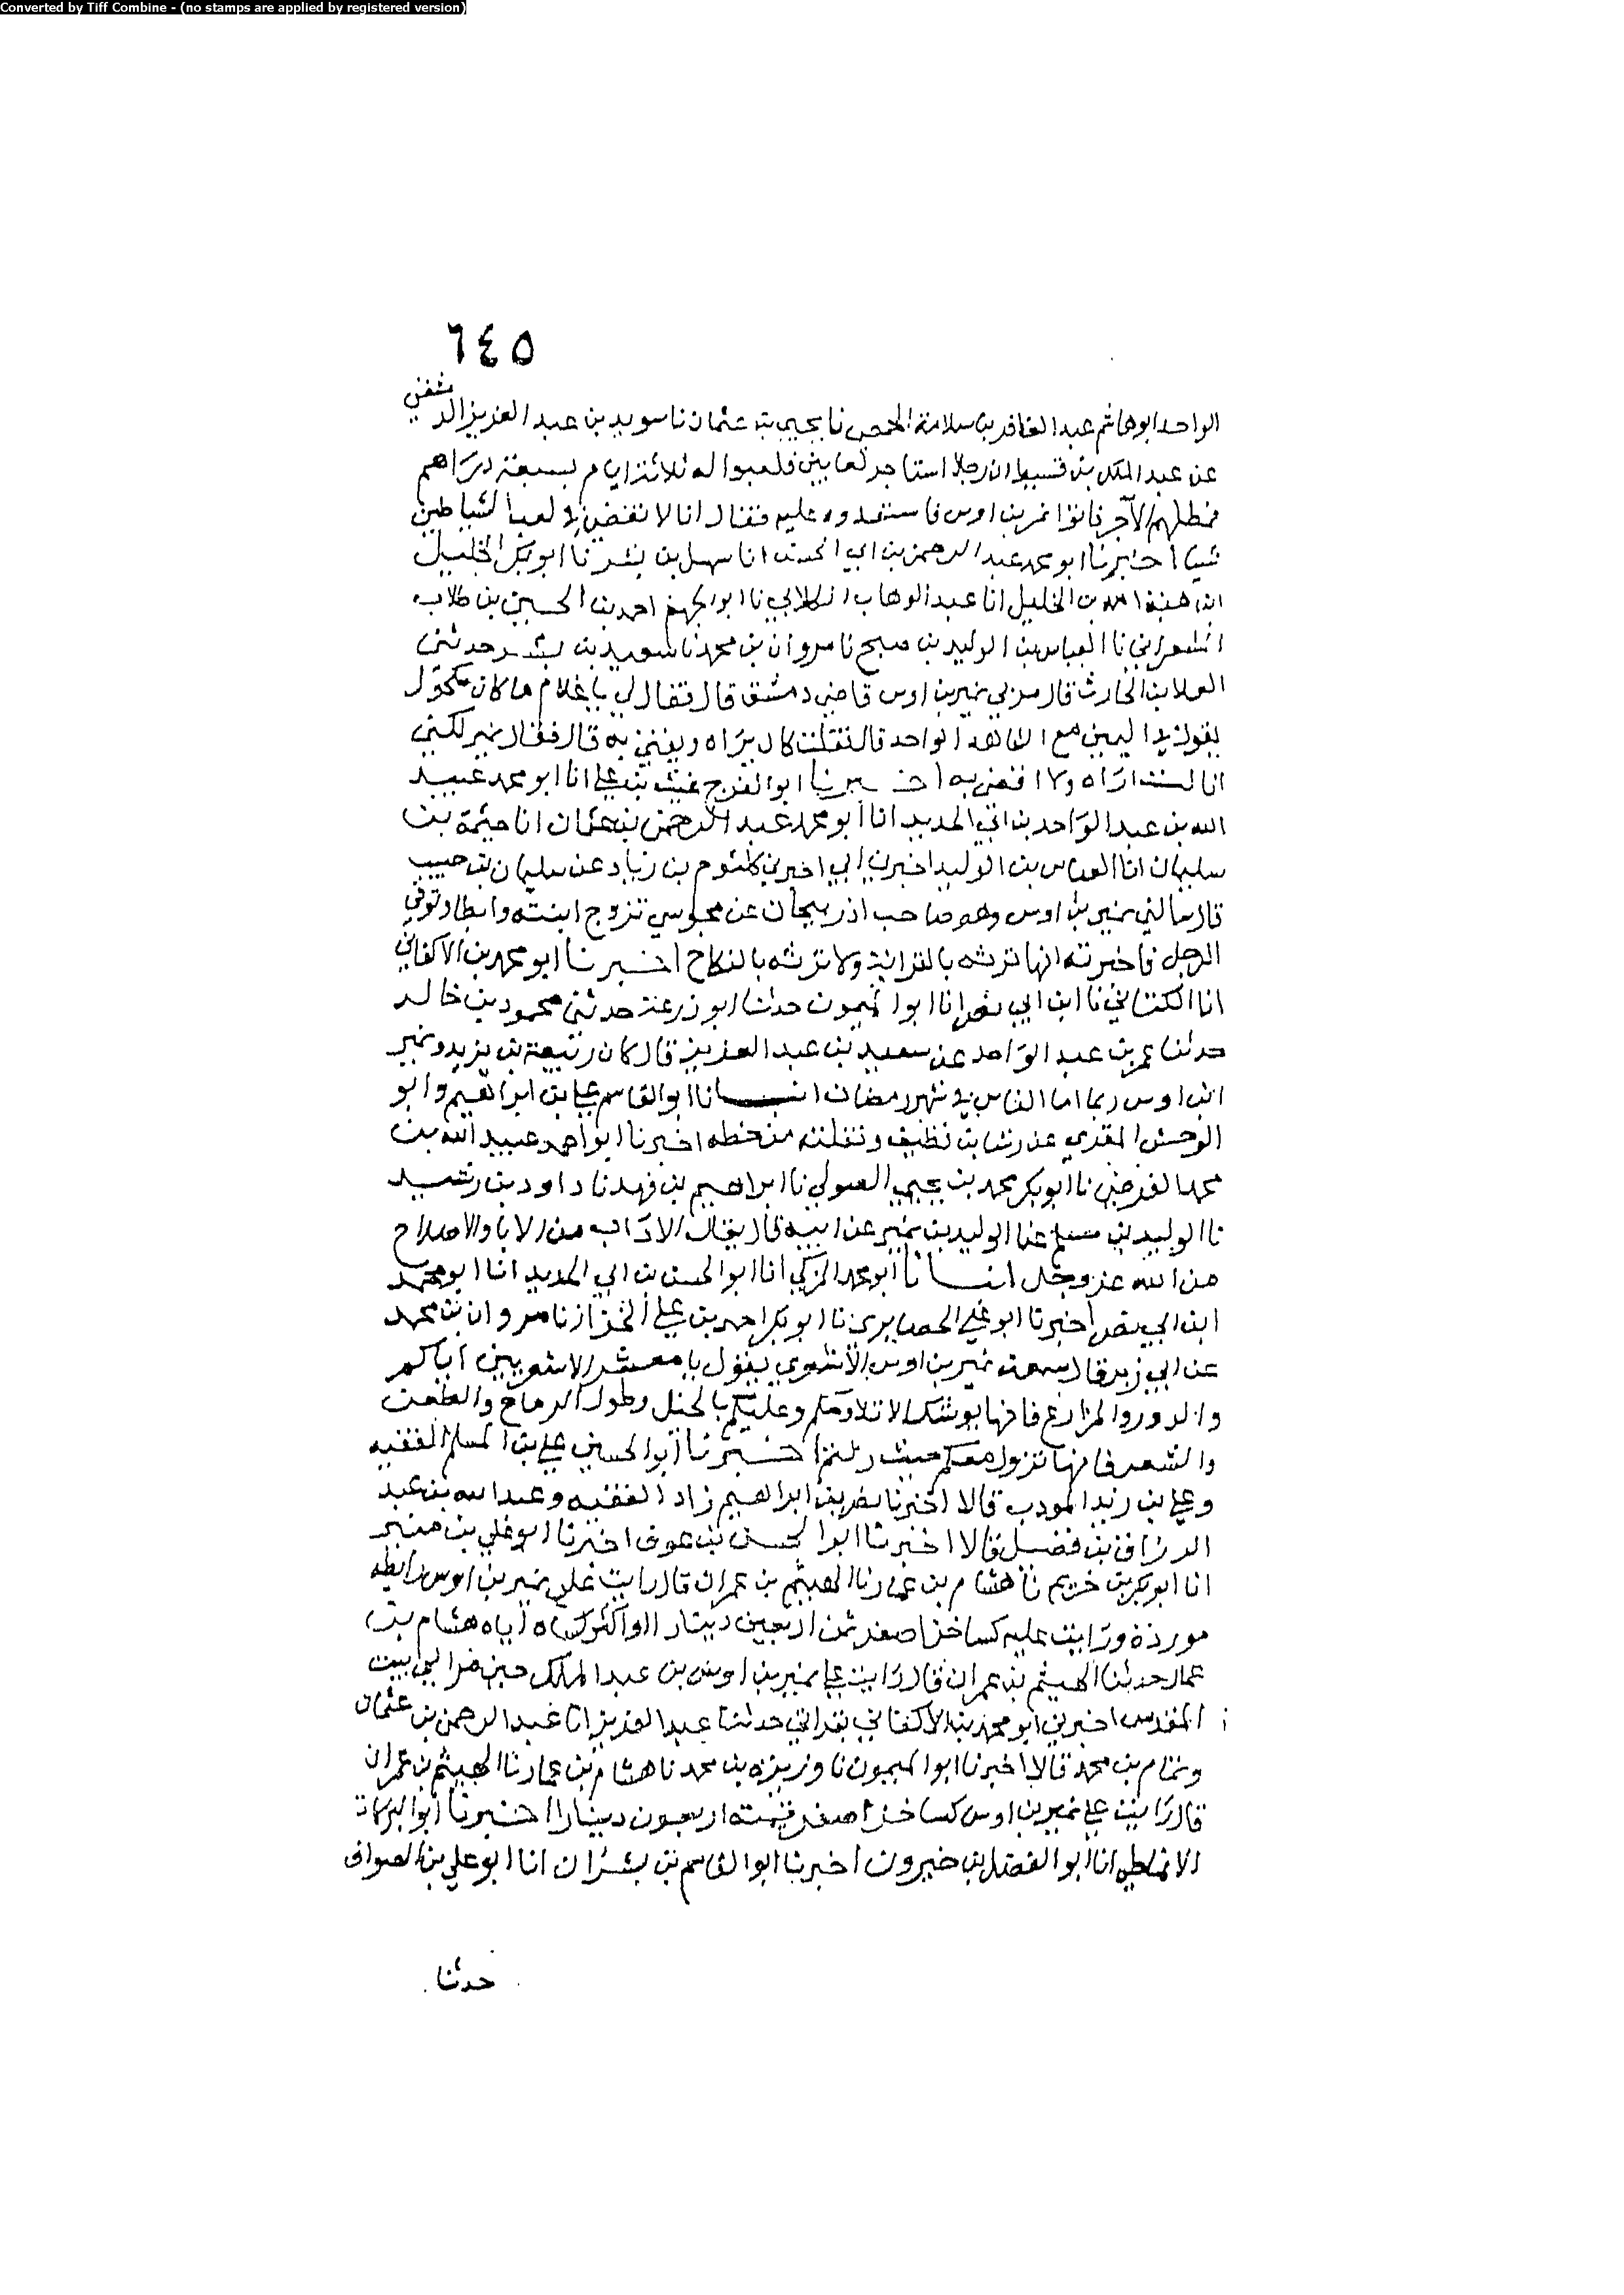 Converted by Tiff Combine - (no stamps are applied by registered version)
٦٤٥
الواحد ابو هاشم عبد الغافر بن سلامة الحمصي نا يحيى بن عثمان نا سويد بن عبد العزيز الدمشقي
عن عبد الملك بن قسيط ان رجلا استاجر لعابين فلعبوا له ثلاثة ايام بسبعة دراهم
فمطلهم الآجر فاتوا نمير بن اوس فاستعدوه عليه فقال انا لا نقضي في لعب الشياطين
شيا اخبرنا ابو محمد عبد الرحمن بن ابي الحسن انا سهل بن بشر نا ابو بكر الخليل
ابن هبة الله بن الخليل انا عبد الوهاب الكلابي نا ابو الجهم احمد بن الحسين بن طلاب
المشغراني نا العباس بن الوليد بن صبح نا مروان بن محمد نا سعيد بن بشير حدثني
العلا بن الحارث قال مر بي نمير بن اوس قاضي دمشق قال فقال لي يا غلام ما كان مكحول
يقول في اليمين مع الشاهد الواحد قال فقلت كان يراه ويفتي به قال فقال نمير لكني
انا لست اراه ولا اقضي به اخبرنا ابو الفرج غيث بن علي انا ابو محمد عبيد
الله بن عبد الواحد بن ابي الحديد انا ابو محمد عبد الرحمن بن عثمان انا خيثمة بن
سليمان انا العباس بن الوليد اخبرني ابي اخبرني كلثوم بن زياد عن سليمان بن حبيب
قال سالني نمير بن اوس وهو صاحب اذربيجان عن مجوسي تزوج ابنته توفي
الرجل فاخبرته انها ترثه بالقرابة ولا ترثه بالنكاح اخبرنا ابو محمد بن الاكفاني
انا الكتاني نا ابن ابي نصر انا ابو الميمون حدثنا ابو زرعة حدثني محمود بن خالد
حدثنا عمر بن عبد الواحد عن سعيد بن عبد العزيز قال كان ربيعة بن يزيد ونمير
ابن اوس ربما اما الناس في شهر رمضان انبانا ابو القاسم علي بن ابراهيم وابو
الوحش المقري عن رشا بن نظيف ونقلته من خطه اخبرنا ابو احمد عبيد الله بن
محمد الفرضي نا ابو بكر محمد بن يحيى الصولي نا ابراهيم بن فهد نا داود بن رشيد
نا الوليد بن مسلم عن الوليد بن نمير عن ابيه قال يقال الاداب من الابا والاصلاح
من الله عز وجل انبانا ابو محمد المزكي انا ابو الحسن بن ابي الحديد انا ابو محمد
ابن ابي نصر اخبرنا ابو علي الحصايري نا ابو بكر احمد بن علي الخزاز نا مروان بن محمد
عن ابي زيد قال سمعت نمير بن اوس الاشعري يقول يا معشر الاشعريين اياكم
والدور والمزارع فانها يوشك لا تلاومكم وعليكم بالخيل وطول الرماح
والشعر فانها تزول معكم حيث زلتم اخبرنا ابو الحسين علي بن المسلم الفقيه
وعلي بن زيد المودب قالا اخبرنا نصر بن ابراهيم زاد الفقيه وعبد الله بن عبد
الرزاق بن فضيل قالا اخبرنا ابو الحسن بن عوف اخبرنا ابو علي بن منير
انا ابو بكر بن خريم نا هشام بن عمار نا الهيثم بن عمران قال رايت على نمير بن اوس رايطه
موردة ورايت عليه كسا خز اصفر ثمن اربعين دينارا او اكثر كساه اياه هشام بن
عمار حدثنا الهيثم بن عمران قال رايت علي نمير بن اوس بن عبد الملك حين مر الي بيت
المقدس اخبرني ابو محمد بن الاكفاني بقراتي حدثنا عبد العزيز انا عبد الرحمن بن عثمان
وتمام بن محمد قالا اخبرنا ابو الميمون نا وزيزة بن محمد نا هشام بن عمار نا الهيثم بن عمران
قال رايت علي نمير بن اوس كسا خز اصفر قيمته اربعون دينارا اخبرنا ابو البركات
الانماطي انا ابو الفضل بن خيرون اخبرنا ابو القاسم بن بشران انا ابو علي بن الصواف
حدثنا